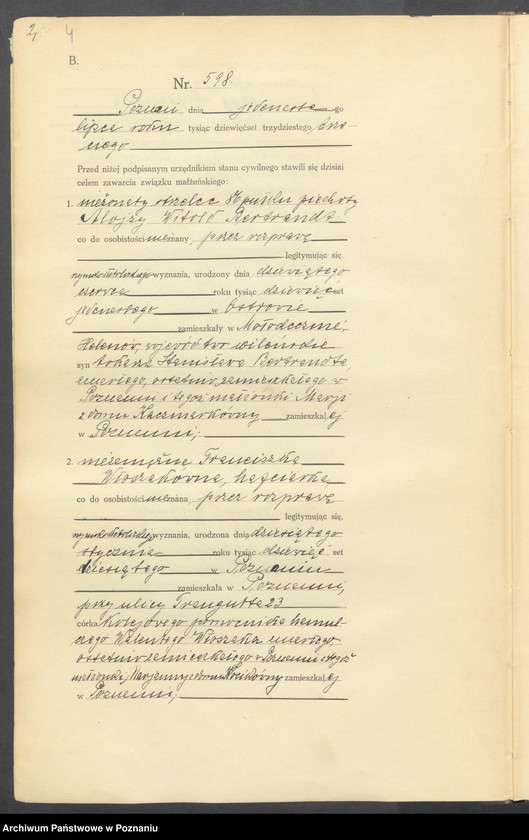 2, 4
B.
Nr. 598
Poznań dnia jedenasta go
lipca roku tysiąc dziewięćset trzydziestego dru-
giego
Przed niżej podpisanym urzędnikiem stanu cywilnego stawili się dzisiaj
celem zawarcia związku małżeńskiego:
1. nieżonaty strzelec pułku piechoty
Alojzy Witold Bertrandt
co do osobistości nieznany, przez rozprawę
legitymując się.
rzymsko katolickiego wyznania, urodzony dnia dziewiątego
czerwca roku tysiąc dziewięćset
jedenastego w Ostrowie
zamieszkały w Mołodecznie,
Helenow, województwo wileńskie
syn tokarza Stanisława Bertrandta,
zmarłego, ostatnio zamieszkałego w
Poznaniu i tegoż małżonki Marji
z domu Kaczmarkówny zamieszkałej
w Poznaniu;
2. niezamężna Franciszka
Włoszakówna, hafciarka
co do osobistości nieznana, przez rozprawę
legitymując się.
rzymsko katolickiego wyznania, urodzona dnia dziesiątego
stycznia roku tysiąc dziewięć set
dziesiątego w Poznaniu
zamieszkała w Poznaniu,
przy ulicy Traugutta 23
córka kolejowego pomocnika hamul-
czego Walentego Włoszaka zmarłego,
ostatnio zamieszkałego w Poznaniu i tegoż
małżonki Marjanny z domu zamieszkałej
w Poznaniu;
Archiwum Państwowe w Poznaniu